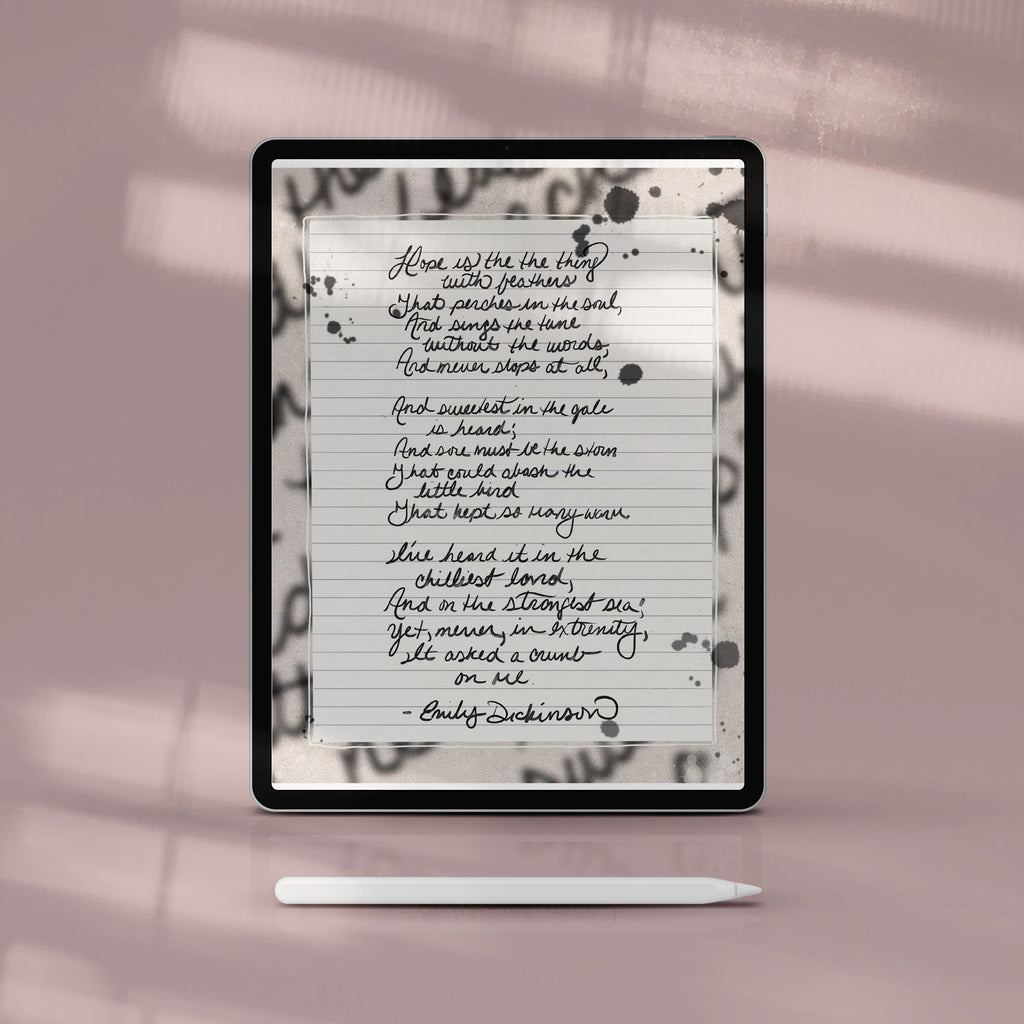 Hope is the the thing
with feathers
That perches in the soul,
And sings the tune
without the words,
And never stops at all,
And sweetest in the gale
is heard;
And sore must be the storm
That could abash the
little bird
That kept so many warm.
I've heard it in the
chilliest land,
And on the strangest sea;
Yet, never, in extremity,
It asked a crumb
on me.
- Emily Dickinson